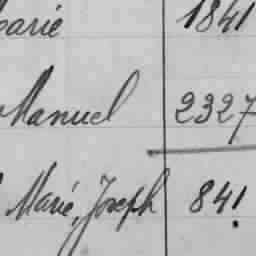 Marié 1841
Manuel 2327
Marié, Joseph 841